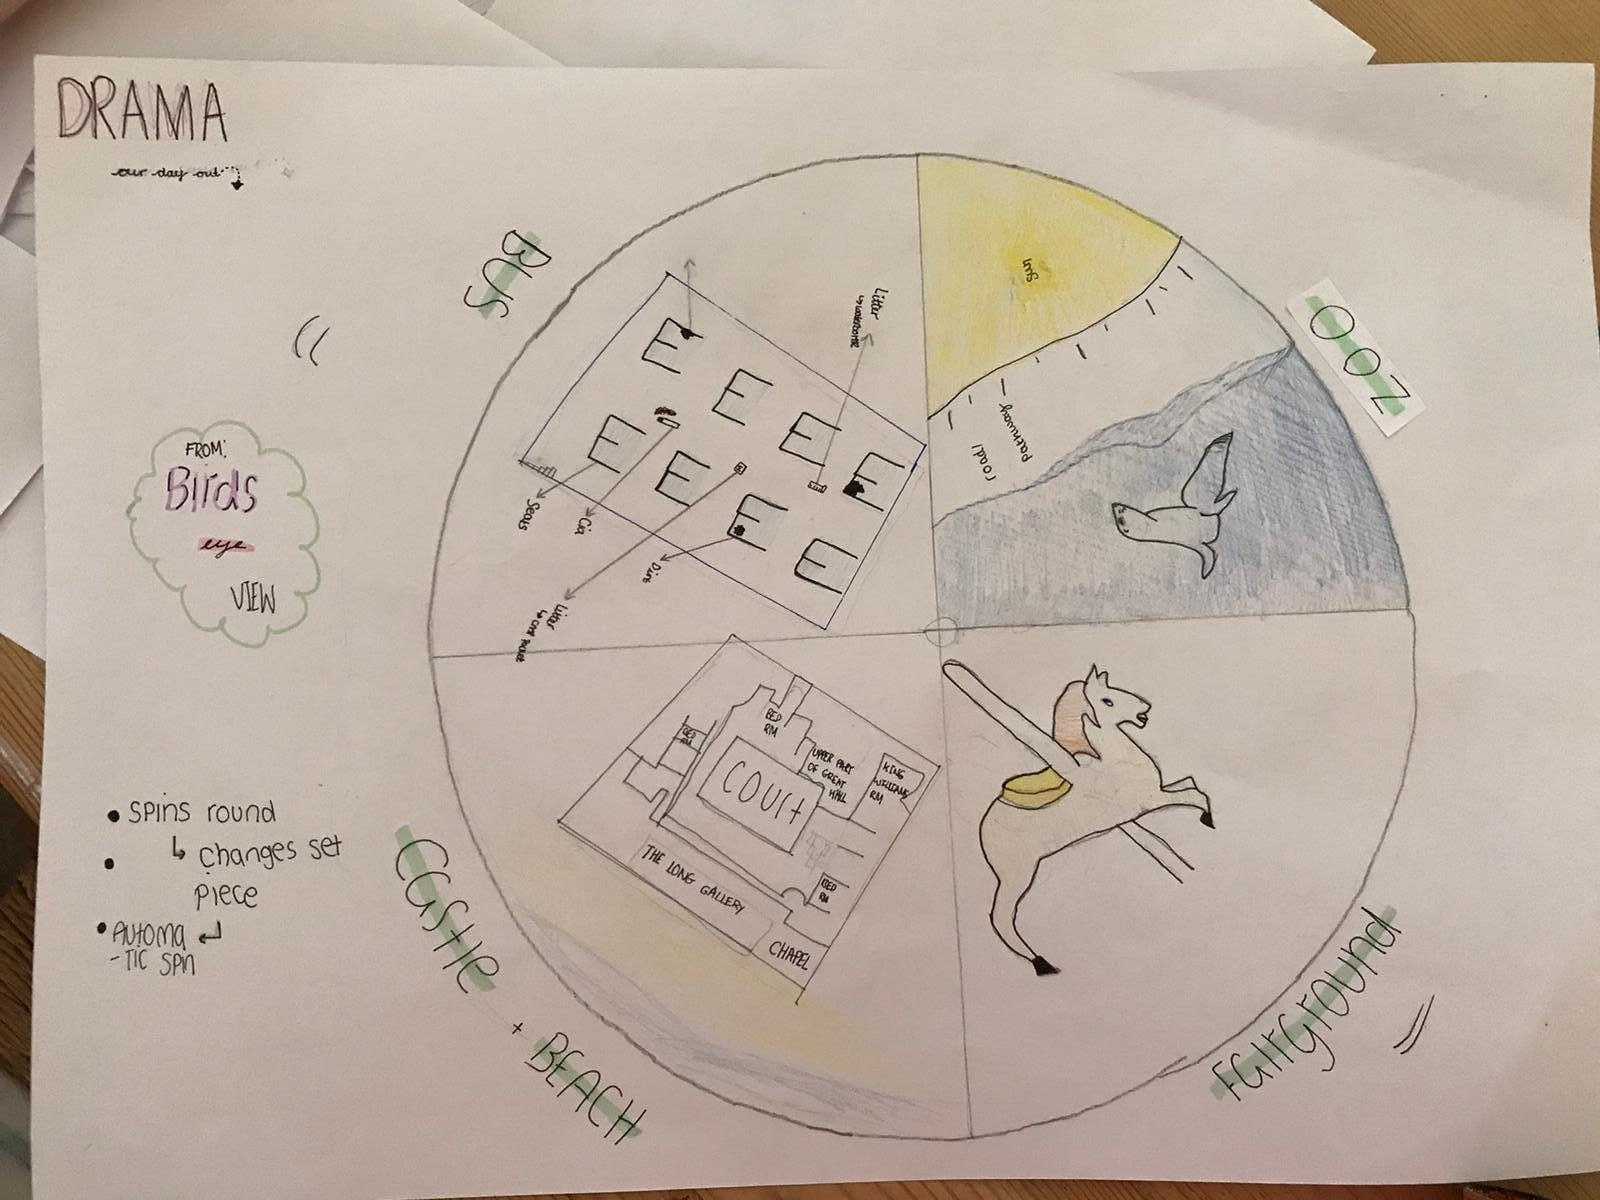 DRAMA
our day out
BUS
ZOO
sun
Litter
pathway
road!
Seats
Dirt
Litter
FROM:
Birds
eye
VIEW
BED
RM
BED
RM
UPPER PART
OF GREAT
HALL
KING
WILLIAMS
RM
COURT
THE LONG GALLERY
BED
RM
CHAPEL
• SPINS round
↳ changes set
piece
• AUTOMA
-TIC SPIN
CASTLE
+ BEACH
FAIRGROUND